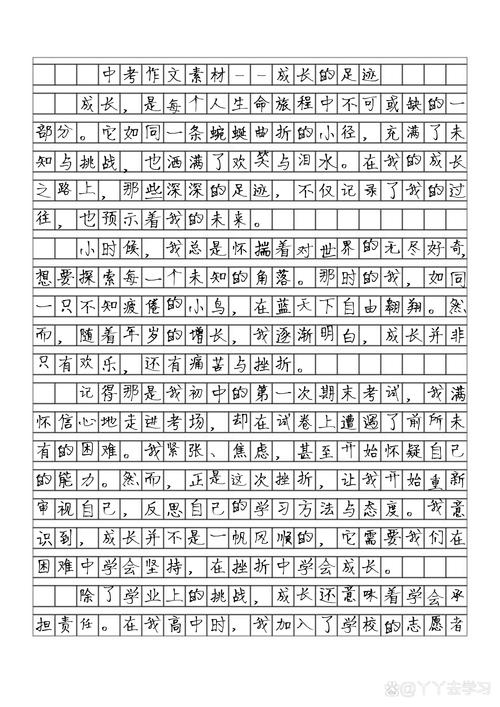 中考作文素材--成长的足迹
成长，是每个人生命旅程中不可或缺的一
部分。它如同一条蜿蜒曲折的小径，充满了未
知与挑战，也洒满了欢笑与泪水。在我的成长
之路上，那些深深的足迹，不仅记录了我的过
往，也预示着我的未来。
小时候，我总是怀揣着对世界的无尽好奇，
想要探索每一个未知的角落。那时的我，如同
一只不知疲倦的小鸟，在蓝天下自由翱翔。然
而，随着年岁的增长，我逐渐明白，成长并非
只有欢乐，还有痛苦与挫折。
记得那是我初中的第一次期末考试，我满
怀信心地走进考场，却在试卷上遭遇了前所未
有的困难。我紧张、焦虑，甚至开始怀疑自己
的能力。然而，正是这次挫折，让我开始重新
审视自己，反思自己的学习方法与态度。我意
识到，成长并不是一帆风顺的，它需要我们在
困难中学会坚持，在挫折中学会成长。
除了学业上的挑战，成长还意味着学会承
担责任。在我高中时，我加入了学校的志愿者
@丫丫去学习